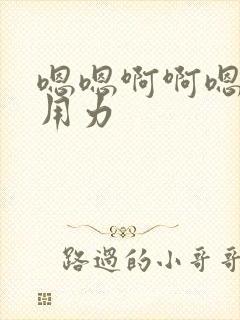 嗯嗯啊啊嗯
用力
路過的小哥哥